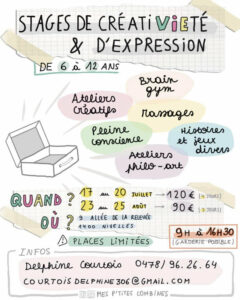 STAGES DE CRÉATIVIETÉ
& D'EXPRESSION
DE 6 À 12 ANS
Brain
gym
Ateliers
Créatifs
Massages
Pleine
conscience
Histoires et
jeux
divers
Ateliers
philo-art
QUAND ?
17 au 20 JUILLET → 120€ (4 JOURS)
23 au 25 AOÛT → 90€ (3 JOURS)
OÙ ?
9 ALLÉE DE LA RELEVÉE
1400 NIVELLES
! PLACES LIMITÉES
9H À 16H30
(GARDERIE POSSIBLE)
INFOS
Delphine Courtois 0478/96.26.64
COURTOISDELPHINE306@GMAIL.COM
MES P'TITES LOMBINES